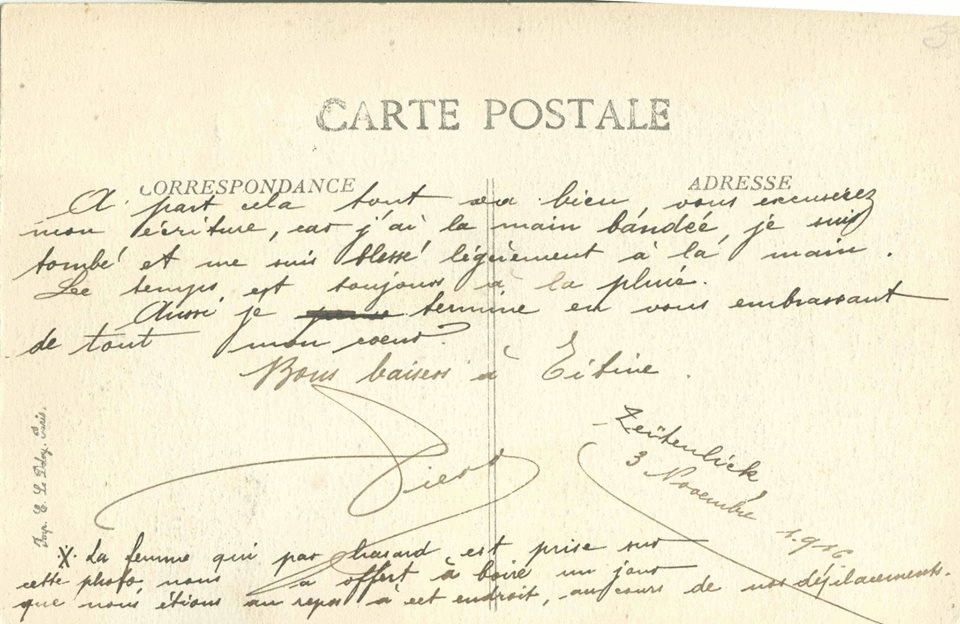 CARTE POSTALE
CORRESPONDANCE
ADRESSE
A part cela tout va bien, vous excuserez
mon écriture, car j'ai la main bandée, je suis
tombé et me suis blessé légèrement à la main.
Le temps est toujours à la pluie.
Aussi je termine en vous embrassant
de tout mon coeur.
Bons baisers à Titine.
Pierre
Zeitenlick
3 Novembre 1916
Imp. E. Le Deley, Paris.
X. La femme qui par hasard est prise sur
cette photo nous a offert à boire un jour
que nous étions au repos à cet endroit, au cours de nos déplacements.